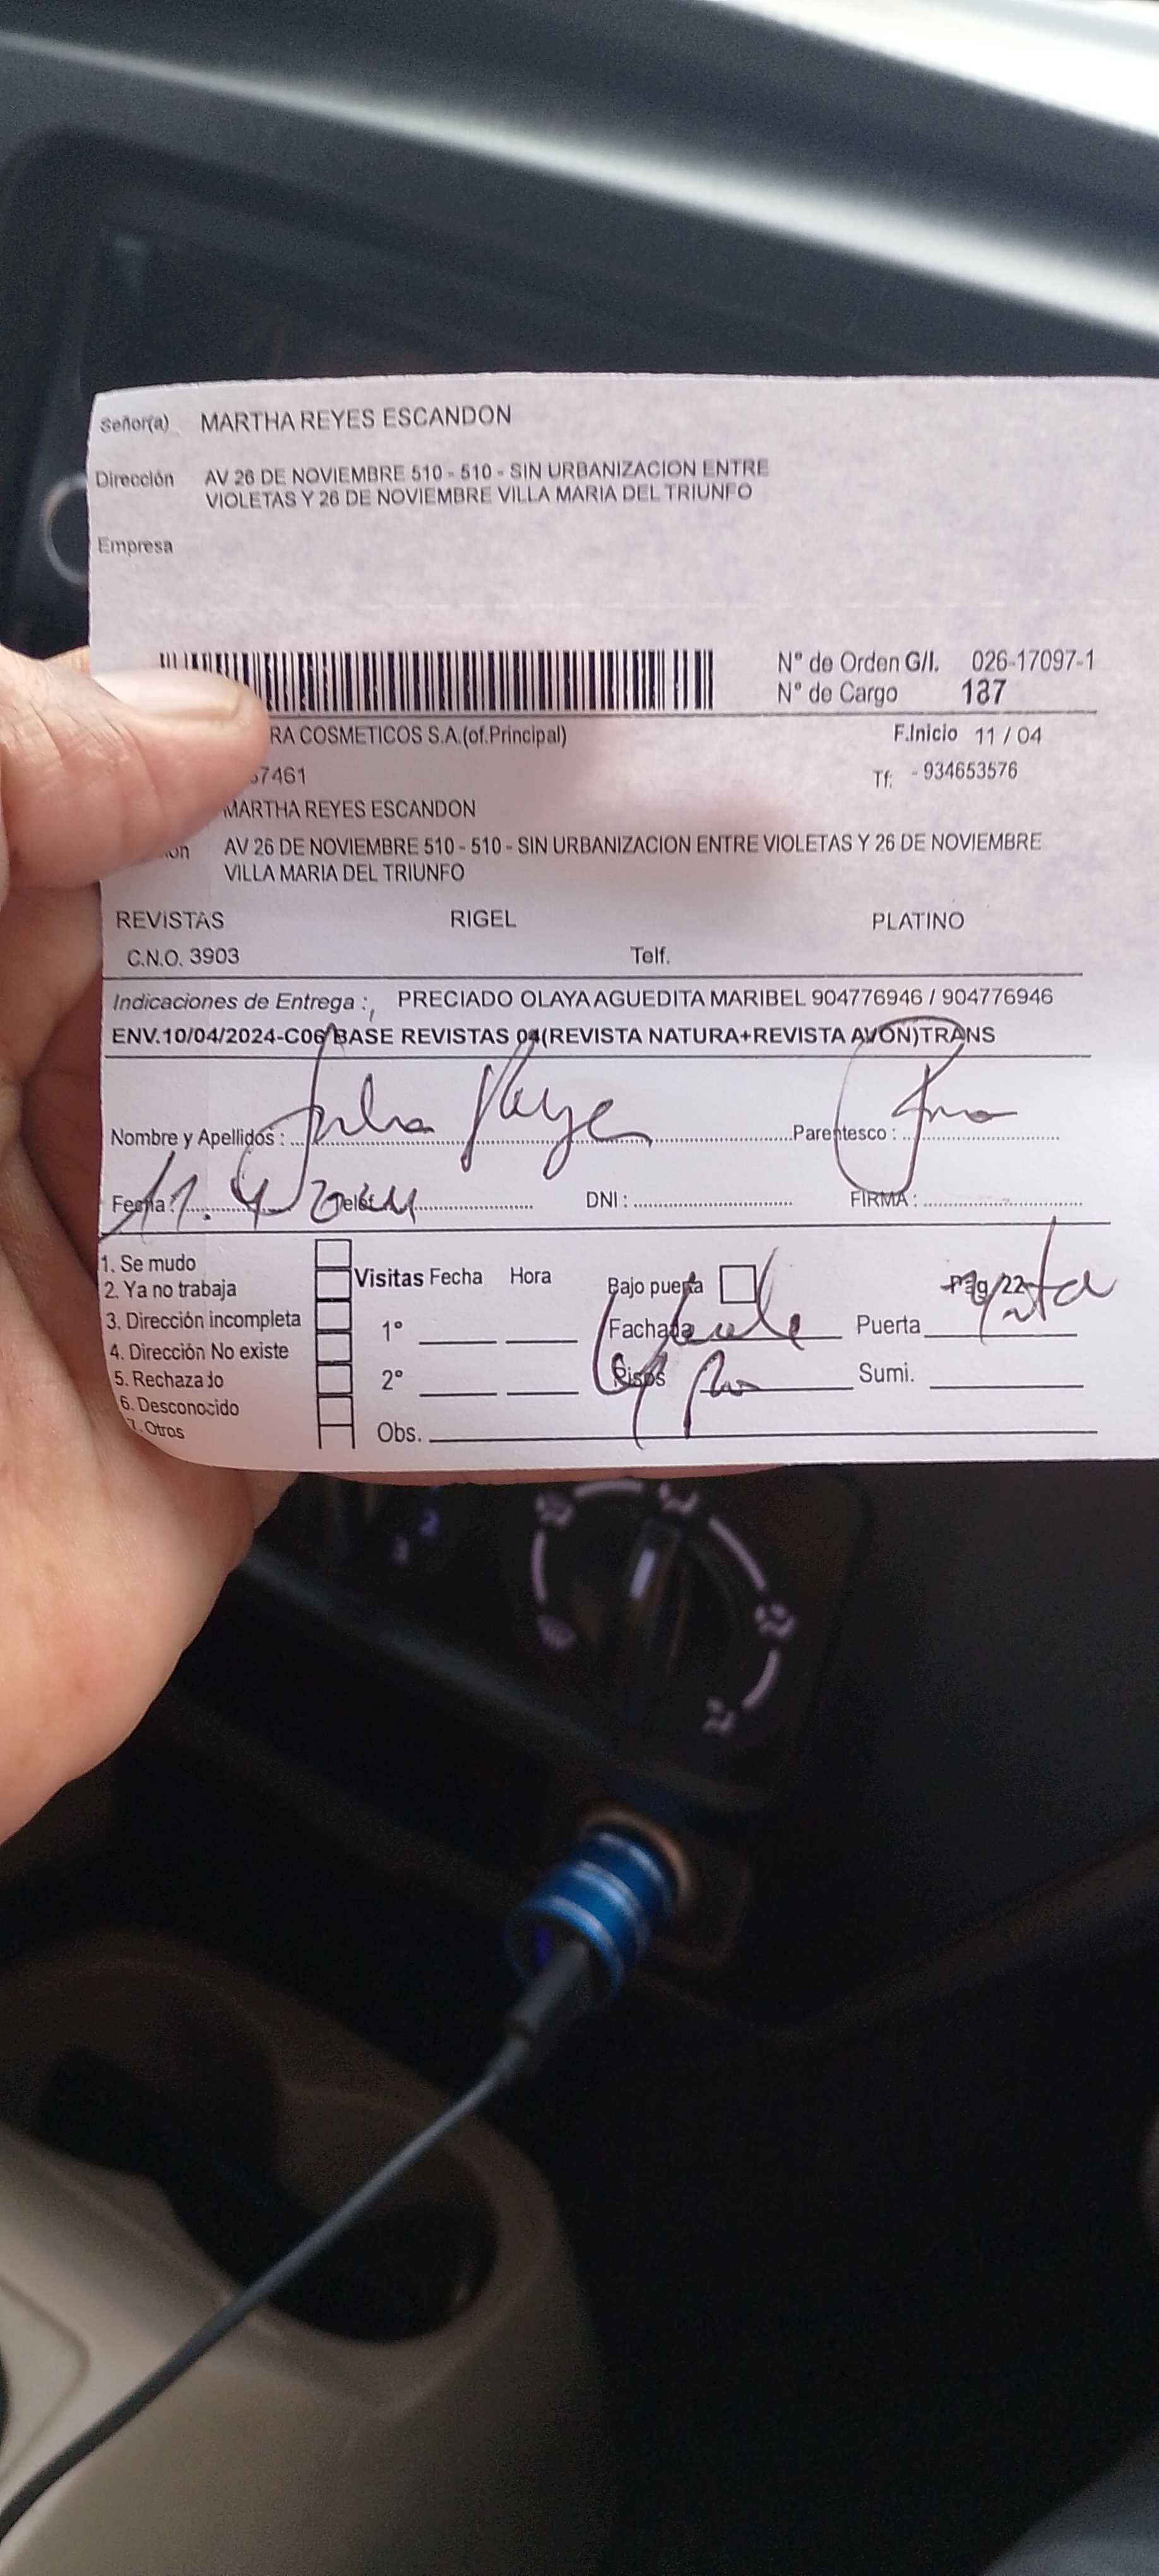 Señor(a) MARTHA REYES ESCANDON
Dirección AV 26 DE NOVIEMBRE 510 - 510 - SIN URBANIZACION ENTRE
VIOLETAS Y 26 DE NOVIEMBRE VILLA MARIA DEL TRIUNFO
Empresa
N° de Orden G/I. 026-17097-1
N° de Cargo 187
RA COSMETICOS S.A.(of.Principal) F.Inicio 11 / 04
67461 Tf: - 934653576
MARTHA REYES ESCANDON
AV 26 DE NOVIEMBRE 510 - 510 - SIN URBANIZACION ENTRE VIOLETAS Y 26 DE NOVIEMBRE
VILLA MARIA DEL TRIUNFO
REVISTAS RIGEL PLATINO
C.N.O. 3903 Telf.
Indicaciones de Entrega : PRECIADO OLAYA AGUEDITA MARIBEL 904776946 / 904776946
ENV.10/04/2024-C06 BASE REVISTAS 04(REVISTA NATURA+REVISTA AVON)TRANS
Nombre y Apellidos : Julia Parentesco :
Fecha : 11. 4 Telef. DNI : FIRMA :
1. Se mudo
2. Ya no trabaja
3. Dirección incompleta
4. Dirección No existe
5. Rechazado
6. Desconocido
7. Otros
Visitas Fecha Hora Bajo puerta Pag 22
1° Fachada Puerta
2° Pisos Sumi.
Obs.
2
3